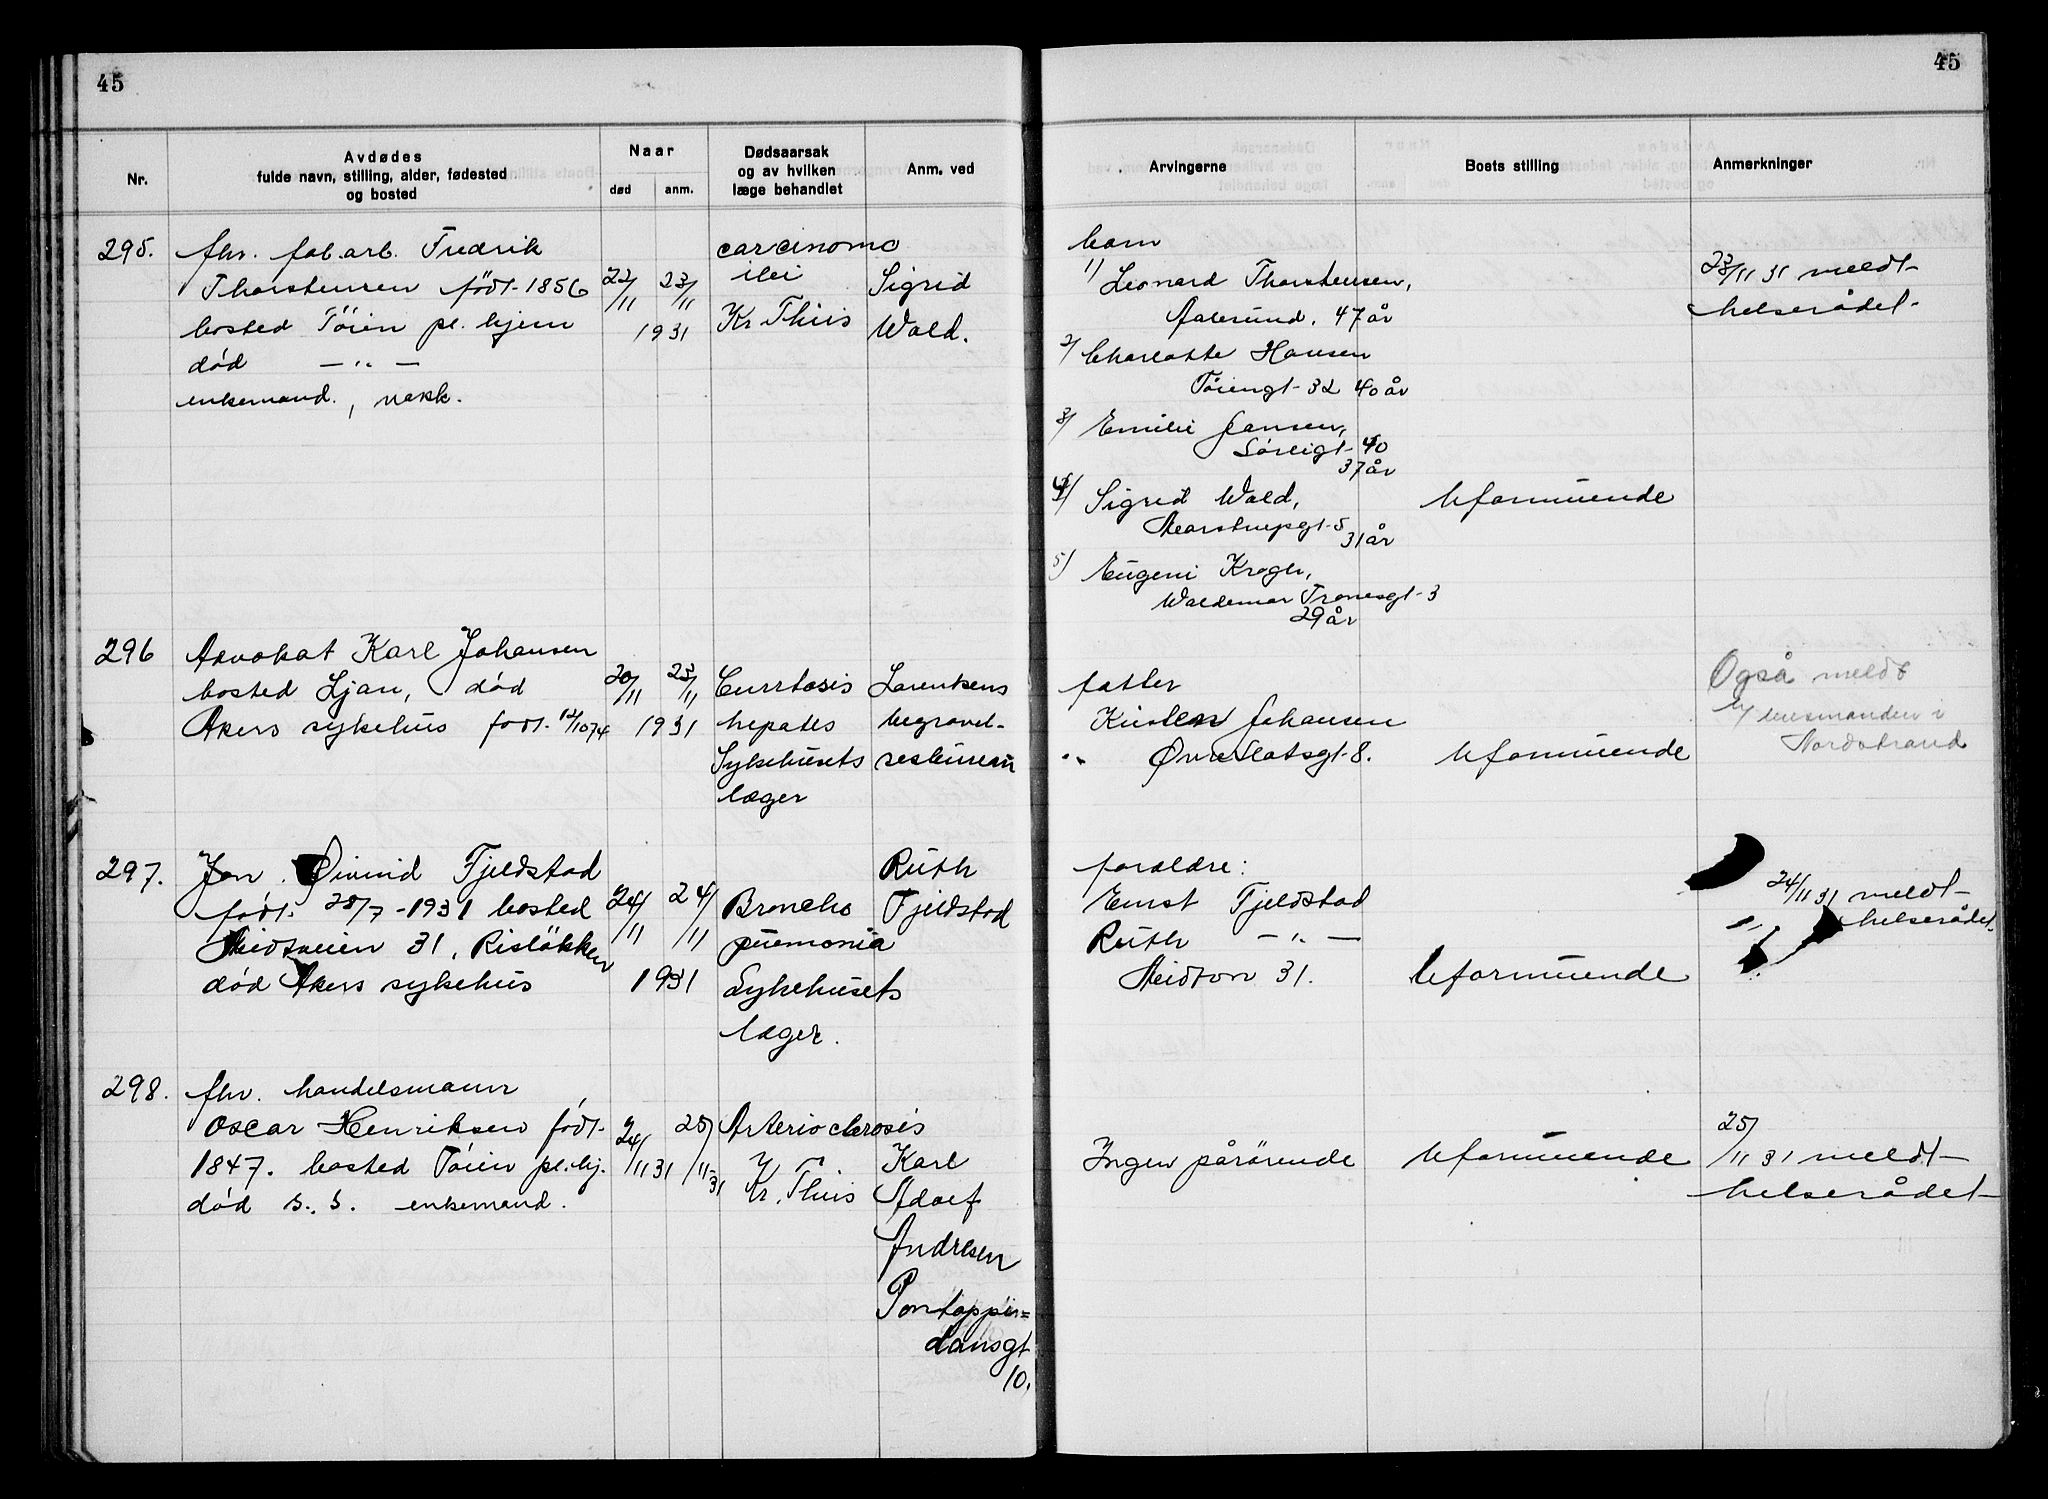 45
45
Nr.
Avdødes
fulde navn, stilling, alder, fødested
og bosted
Naar
død
anm.
Dødsaarsak
og av hvilken
læge behandlet
Anm. ved
Arvingerne
Boets stilling
Anmerkninger
295.
fhv. fab.arb. Fredrik
Thorstensen født 1856
bosted Töien pl. hjem
død — " —
enkemand., vakk.
22/11 23/11
1931
carcinoma
ilei
Kr Thiis
Sigrid
Wold.
barn
1/ Leonard Thorstensen,
Aalesund, 47 år
2/ Charlotte Hansen
Töiengt 32 40 år
3/ Emilie Jansen,
Sørligt 40
37 år
4/ Sigrid Wold,
Marstrupsgt 5
31 år
5/ Eugeni Krogh,
Waldemar Tranesgt 3
29 år
Uformuende
23/11 31 meldt
helserådet
296
Advokat Karl Johansen
bosted Ljan, død
Akers sykehus født 12/10 74
20/11 23/11
1931
Cirrhosis
hepatis
Sykehusets
læger
Larentsens
begravel-
sesbureau
fatter
Kirsten Johansen
Øvre Slotsgt 8.
Uformuende
Også meldt
t/ lensmanden i
Nordstrand
297.
Jon Øivind Fjeldstad
født 28/7 - 1931 bosted
Meidtveien 31, Risløkken
død Akers sykehus
24/11 24/11
1931
Broncho
pnemonia
Sykehusets
læger.
Ruth
Fjeldstad
foreldre:
Ernst Fjeldstad
Ruth — " —
31.
Uformuende
24/11 31 meldt
helserådet
298.
fhv. handelsmann
Oscar Henriksen født
1847. bosted Töien pl.hj.
død s. s. enkemand.
24/11 31 25/11 31
Arterioclerosis
Kr. Thiis
Karl
Adolf
Andresen
Pontoppi-
dansgt
10.
Ingen pårörende
Uformuende
25/11 31 meldt
helserådet